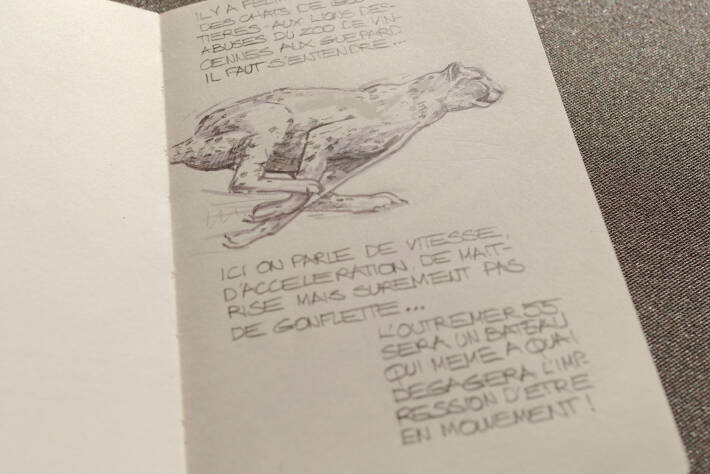 IL Y A FELIN
DES CHATS DE GOUT-
TIERES AUX LIONS DES-
ABUSES DU ZOO DE VIN-
CENNES AUX GUEPARD
IL FAUT S'ENTENDRE...
ICI ON PARLE DE VITESSE,
D'ACCELERATION, DE MAIT-
RISE MAIS SUREMENT PAS
DE GONFLETTE...
L'OUTREMER 55
SERA UN BATEAU
QUI MEME A QUAI
DEGAGERA L'IMP-
RESSION D'ETRE
EN MOUVEMENT!